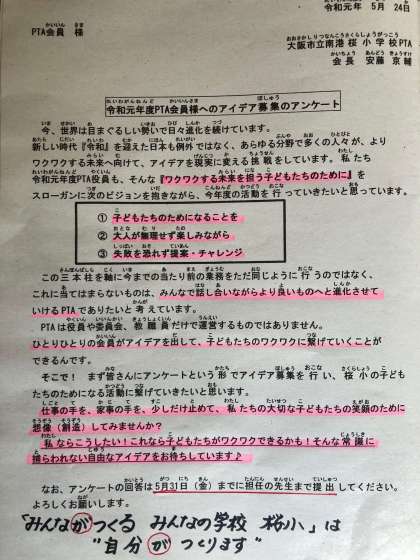 令和元年 5月 24日
PTA会員 様
大阪市立南港桜小学校PTA
会長 安藤 京輔
令和元年度PTA会員様へのアイデア募集のアンケート
今、世界は目まぐるしい勢いで日々進化を続けています。
新しい時代『令和』を迎えた日本も例外ではなく、あらゆる分野で多くの人々が、より
ワクワクする未来へ向けて、アイデアを現実に変える挑戦をしています。私たち
令和元年度PTA役員も、そんな『ワクワクする未来を担う子どもたちのために』を
スローガンに次のビジョンを抱きながら、今年度の活動を行なっていきたいと思っています。
① 子どもたちのためになることを
② 大人が無理せず楽しみながら
③ 失敗を恐れず提案・チャレンジ
この三本柱を軸に今までの当たり前の業務をただ同じように行うのではなく、
これに当てはまらないものは、みんなで話し合いながらより良いものへと進化させて
いけるPTAでありたいと考えています。
PTAは役員や委員会、教職員だけで運営するものではありません。
ひとりひとりの会員がアイデアを出して、子どもたちのワクワクに繋げていくことが
できるんです。
そこで! まず皆さんにアンケートという形でアイデア募集を行い、桜小の子ども
たちのためになる活動に繋げていきたいと思います。
仕事の手を、家事の手を、少しだけ止めて、私たちの大切な子どもたちの笑顔のために
想像(創造)してみませんか?
私ならこうしたい!これなら子どもたちがワクワクできるかも!そんな常識に
捕らわれない自由なアイデアをお待ちしています♪
なお、アンケートの回答は5月31日(金)までに担任の先生まで提出してください。
よろしくお願します。
「みんながつくる みんなの学校 桜小」は
"自分がつくります"